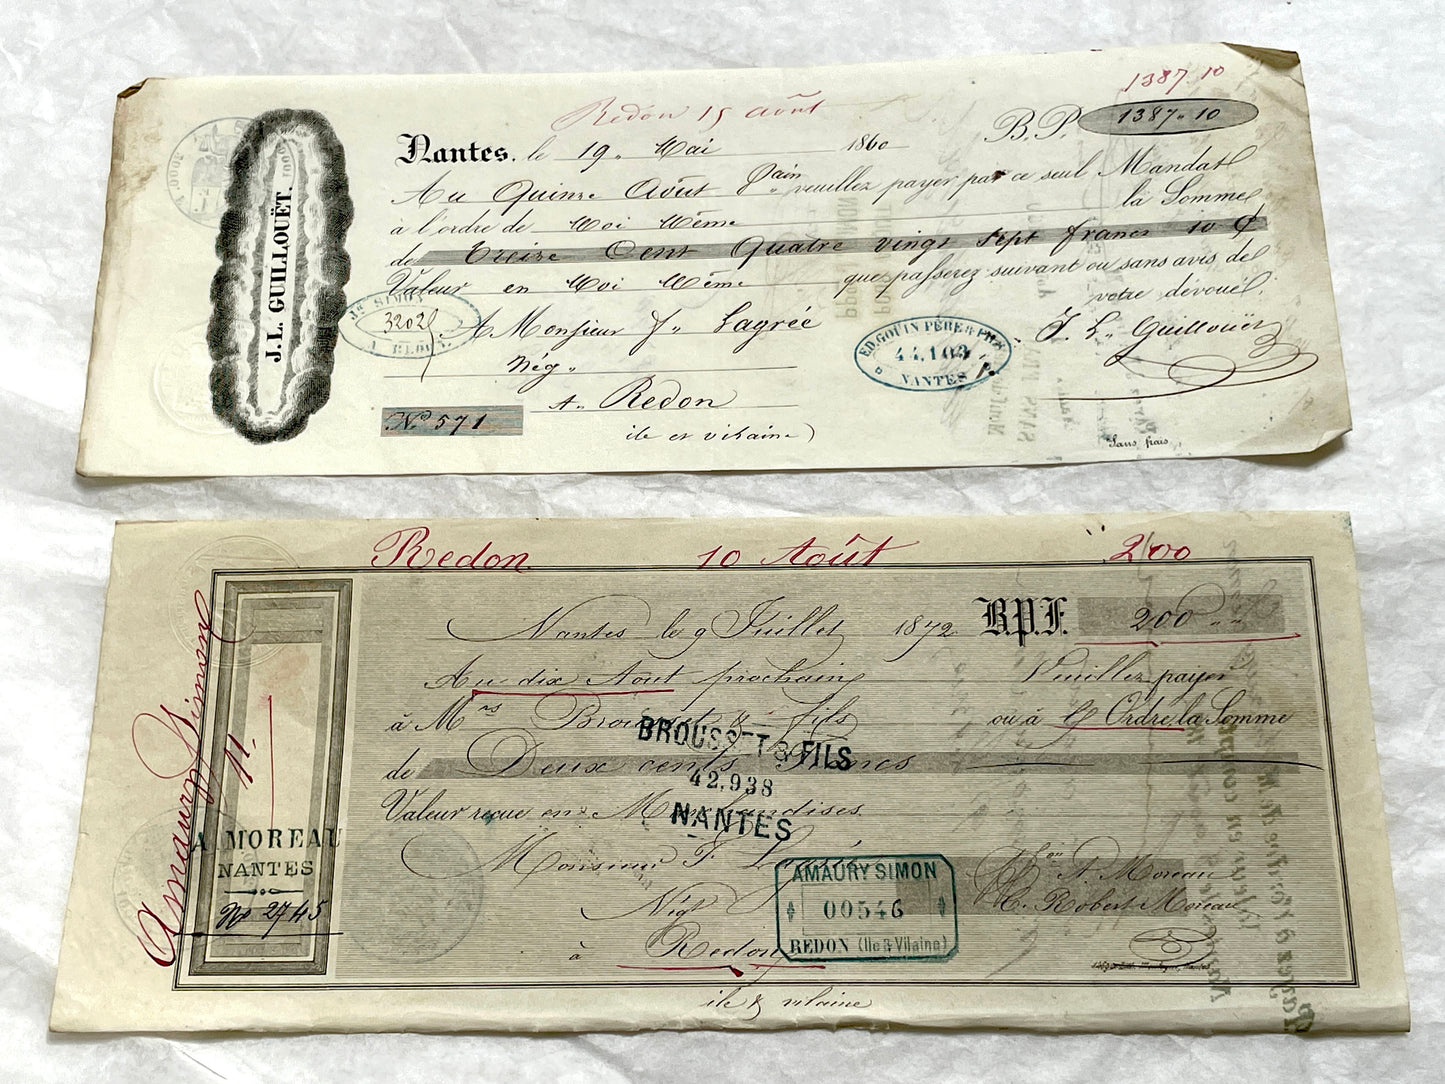 1387.10
Redon 15 août
B.P. 1387.10
Nantes, le 19 Mai 1860
Au Quinze Août Pain veuillez payer par ce seul Mandat
à l'ordre de Moi Même la Somme
de Treize Cent Quatre vingt sept francs 10 c
Valeur en Moi Même que passerez suivant ou sans avis de
votre dévoué
J.L. GUILLOUËT.
Jh SIMON
3202
A REDON
A Monsieur F. Lagrée
Nég.
ED. GOUIN PÈRE & FILS
44.103
NANTES
J. L. Guillouët
No 571
A Redon
ile et vilaine
Sans frais
Redon 10 Août 200
Nantes le 9 Juillet 1872 B.P.F. 200
Au dix Aout prochain Veuillez payer
à Mrs Brousset & fils ou à l' Ordre la Somme
de Deux cents Francs
Valeur reçue en Marchandises
BROUSSET & FILS
42.938
NANTES
Monsieur F. Lagrée
Négt
à Redon
ile & vilaine
AMAURY SIMON
00546
REDON (Ile & Vilaine)
A Moreau
Robert Moreau
Amaury Simon
A MOREAU
NANTES
No 2745